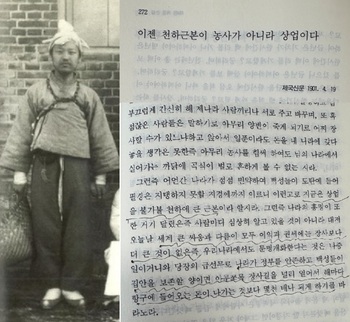 272
이젠 천하근본이 농사가 아니라 상업이다
제국신문 1901. 4. 19
부끄럽게 간신히 해 제나라 사람끼리나 서로 주고 바꾸며, 또 혹
점잖은 사람들은 말하기로 아무리 양반이 죽게 되기로 어찌 장
사할 수가 있느냐하고 앉아서 일푼이라도 돈을 내 나라에 갖다
놓을 생각은 못한즉 아무리 농사를 힘써 하여도 남의 나라에서
실어가는 까닭에 곡식이 별로 흔하게 볼 수 없는 지라.
그런즉 어언간 나라가 점점 빈약하여 백성들이 도탄에 들어
필경은 지탱하지 못할 지경까지 이르니 이런고로 지금은 상업
을 불가불 천하에 큰 근본이라 할지라. 그런즉 나라의 흥정이 또
한 거기 달렸은즉 사람마다 심상히 알고 있을 것이 아니라 대개
오늘날 세계 큰 싸움과 다름이 모두 이익과 권세에는 장사보다
더 큰 것이 없은즉 우리나라에서도 문명개화한다는 것은 나중
일이거니와 당장의 급선무로 나라가 정부를 안존하고 백성들이
집안을 보존할 양이면 안
장사길을 널리 열어서 해마다
항구에 들어오는 돈이 나가는 것보다 몇천 배나 되게 하기를 바
라노라.